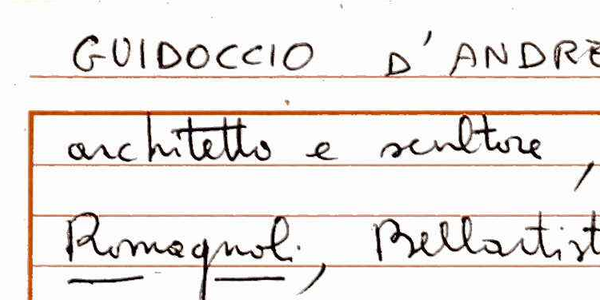 GUIDOCCIO D'ANDRE
architetto e scultore,
Romagnoli, Bellartist